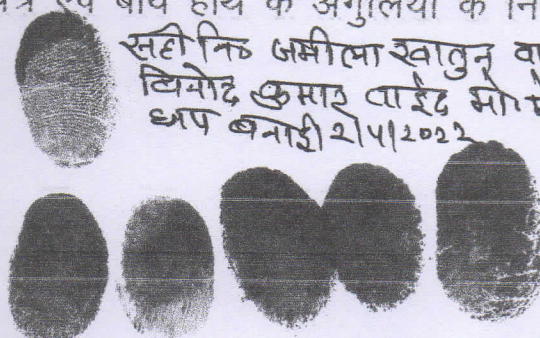 एवं बायें हाथ के अंगुलियों के नि
सही नि० जमीला खातुन वा
विनोद कुमार ताईद मो०
छाप बनाई 2/4/2022